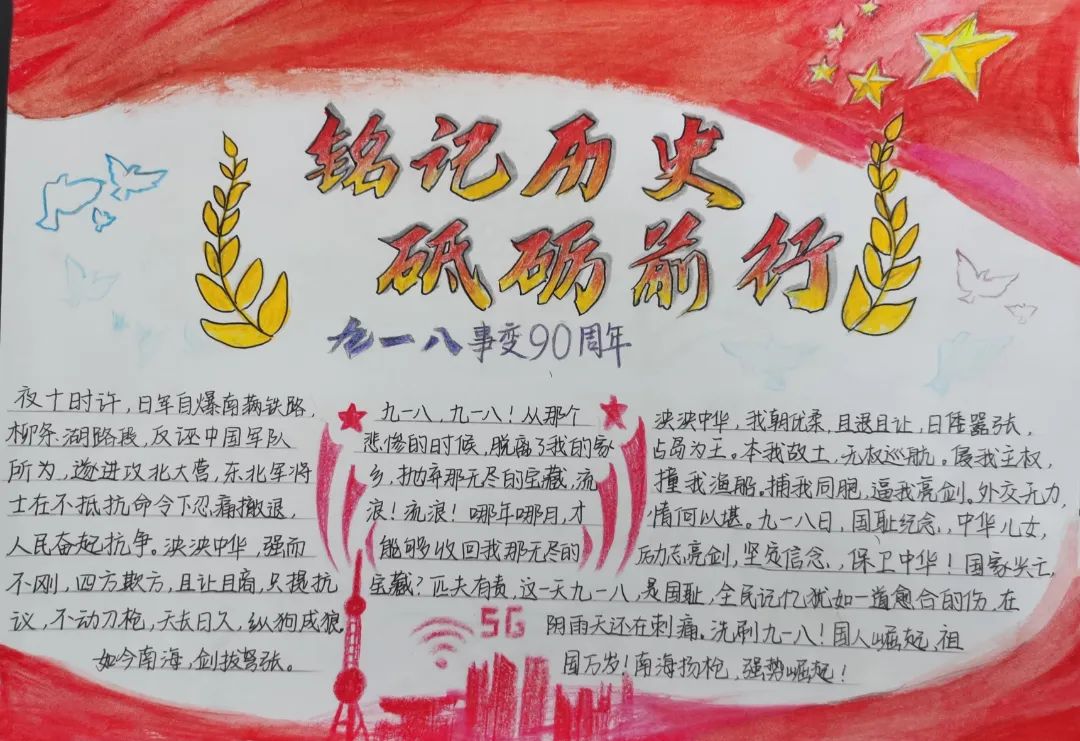 铭记历史
砥砺前行
九一八事变90周年
夜十时许,日军自爆南满铁路,
柳条湖路段,反诬中国军队
所为,遂进攻北大营,东北军将
士在不抵抗命令下忍痛撤退,
人民奋起抗争。泱泱中华,强而
不刚,四方欺方,且让且商,只提抗
议,不动刀枪,天长日久,纵狗成狼,
如今南海,剑拔弩张。
九一八,九一八!从那个
悲惨的时候,脱离了我的家
乡,抛弃那无尽的宝藏,流
浪!流浪!哪年哪月,才
能够收回我那无尽的
宝藏?匹夫有责,这一天九一八,
5G
泱泱中华,我朝优柔,且退且让,日倭嚣张,
占岛为王。本我故土,无权巡航。辱我主权,
撞我渔船。捕我同胞,逼我亮剑。外交无力,
情何以堪。九一八日,国耻纪念,中华儿女,
励志亮剑,坚定信念,保卫中华!国家兴亡,
是国耻,全民记忆犹如一道愈合的伤,在
阴雨天还在刺痛。洗刷九一八!国人崛起,祖
国万岁!南海扬枪,强势崛起!